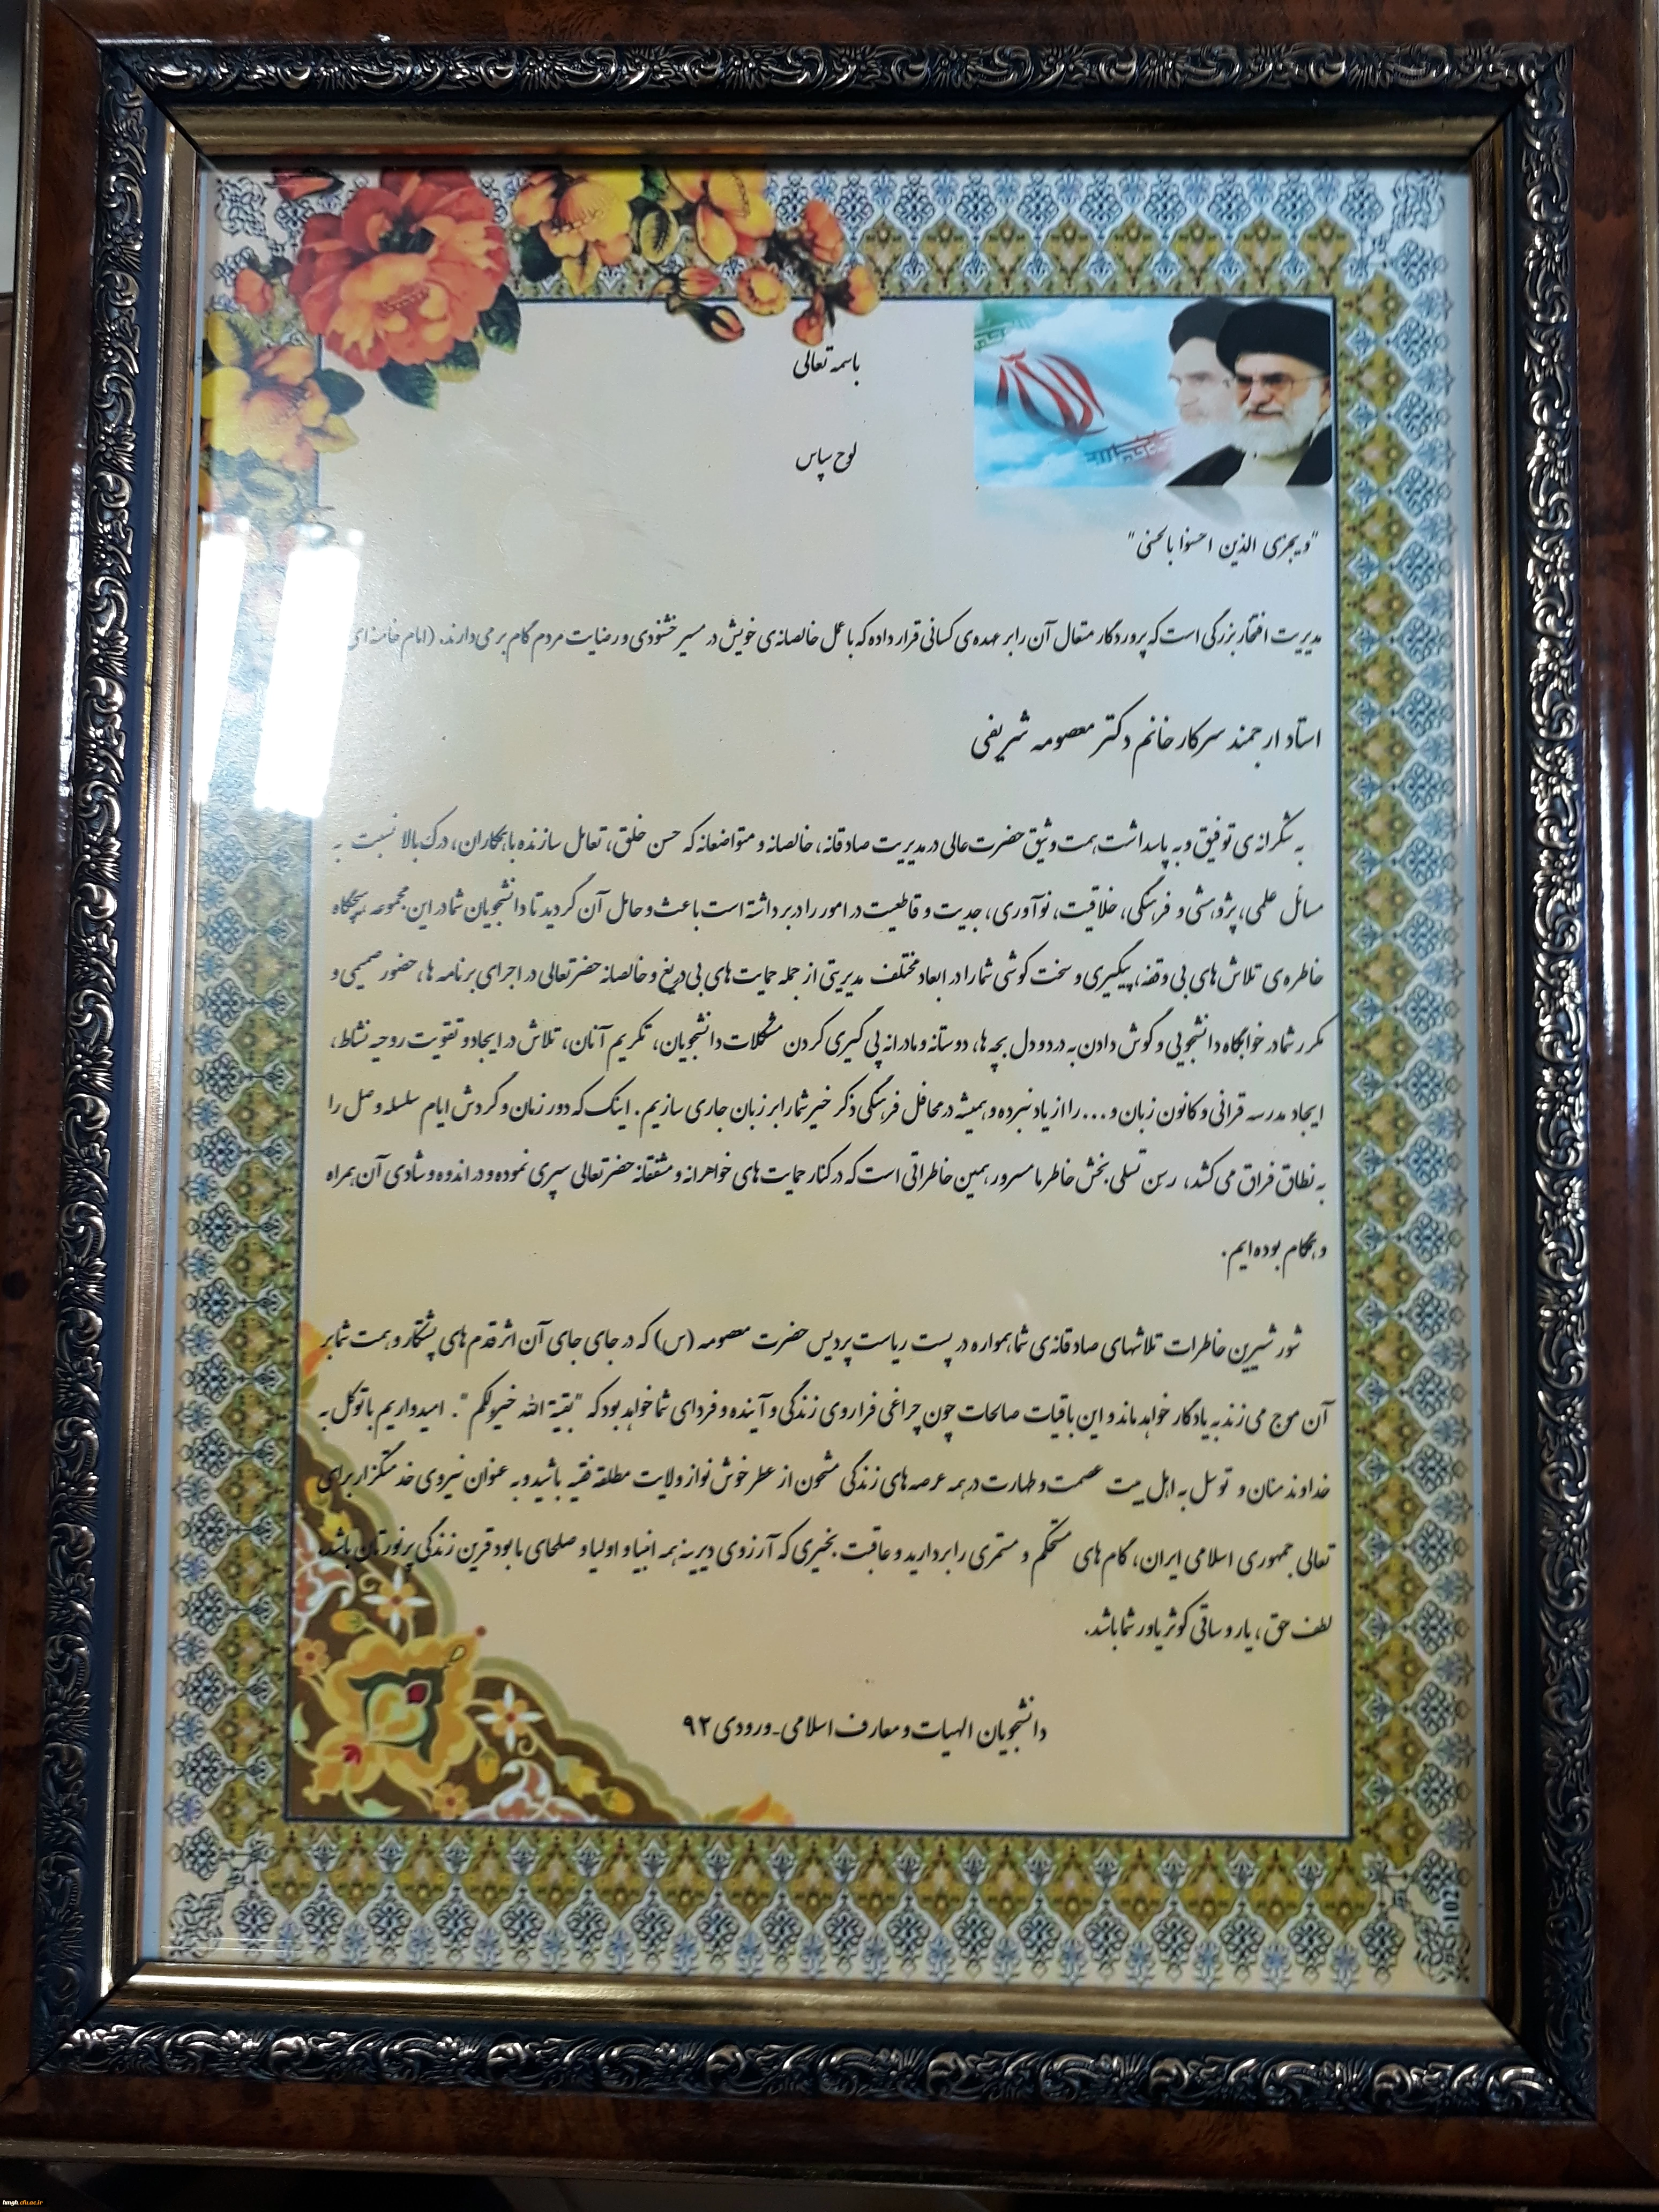 باسمه تعالی
لوح سپاس
"ویجزی الذین احسنوا بالحسنی"
مدیریت افتخار بزرگی است که پروردگار متعال آن را بر عهده‌ی کسانی قرار داده که با عمل خالصانه‌ی خویش در مسیر خشنودی و رضایت مردم گام بر می دارند. (امام خامنه ای
استاد ارجمند سرکار خانم دکتر معصومه شریفی
به شکرانه‌ی توفیق و به پاسداشت همت وثیق حضرت عالی در مدیریت صادقانه، خالصانه و متواضعانه که حسن خلق، تعامل سازنده با همکاران، درک بالا نسبت به
مسائل علمی، پژوهشی و فرهنگی، خلاقیت، نوآوری، جدیت و قاطعیت در امور را در برداشته است باعث و حامل آن گردید تا دانشجویان شما در این مجموعه هیچگاه
خاطره‌ی تلاش های بی وقفه، پیگیری و سخت کوشی شما را در ابعاد مختلف مدیریتی از جمله حمایت های بی دریغ و خالصانه حضرتعالی در اجرای برنامه ها، حضور صمیمی و
مکرر شما در خوابگاه دانشجویی و گوش دادن به درد و دل بچه ها، دوستانه و مادرانه پی گیری کردن مشکلات دانشجویان، تکریم آنان، تلاش در ایجاد و تقویت روحیه نشاط،
ایجاد مدرسه قرانی و کانون زبان و ... را از یاد نبرده و همیشه در محافل فرهنگی ذکر خیر شما را بر زبان جاری سازیم. اینک که دور زمان و گردش ایام سلسله وصل را
به نطاق فراق می کشد، رسن تسلی بخش خاطر ما مسرور همین خاطراتی است که در کنار حمایت های خواهرانه و مشفقانه حضرتعالی سپری نموده و در اندوه و شادی آن همراه
و همگام بوده ایم.
شور شیرین خاطرات تلاشهای صادقانه‌ی شما همواره در پست ریاست پردیس حضرت معصومه (س) که در جای جای آن اثر قدم های پشتکار و همت شما بر
آن موج می زند به یادگار خواهد ماند و این باقیات صالحات چون چراغی فراروی زندگی و آینده و فردای شما خواهد بود که "بقیة الله خیر لکم". امیدواریم با توکل به
خداوند منان و توسل به اهل بیت عصمت و طهارت در همه عرصه های زندگی مشحون از عطر خوش نواز ولایت مطلقه فقیه باشید و به عنوان نیروی خدمتگزار برای
تعالی جمهوری اسلامی ایران، گام های مستحکم و مستمری را بردارید و عاقبت بخیری که آرزوی دیرینه همه انبیا و اولیا و صلحای ما بود قرین زندگی پرنورتان باشد.
لطف حق، یار و ساقی کوثر یاور شما باشد.
دانشجویان الهیات و معارف اسلامی-ورودی ۹۲
1027
hmgh.cfu.ac.ir